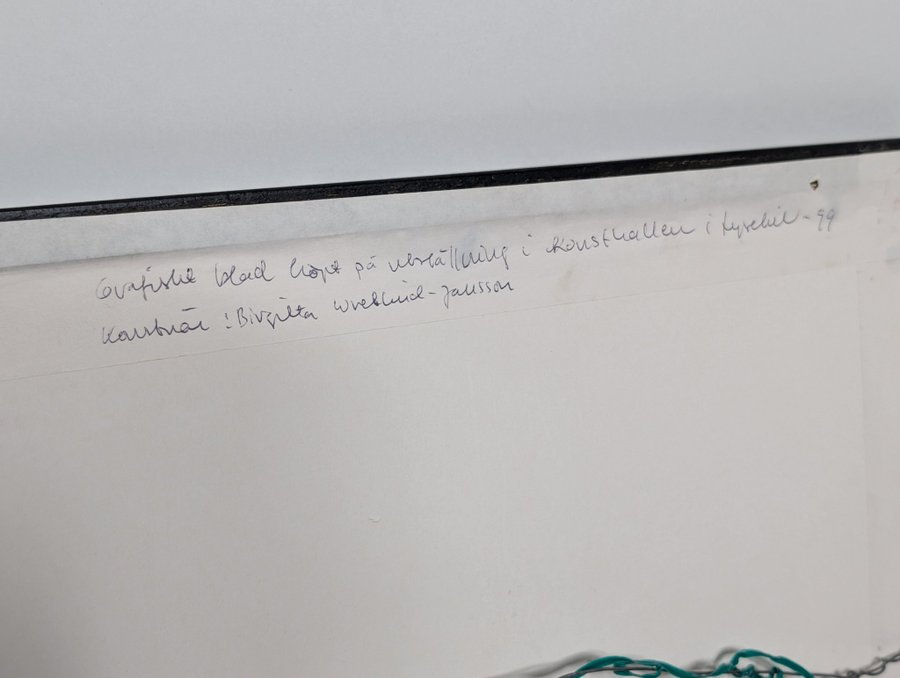 Grafiskt blad köpt på utställning i Konsthallen i Lysekil -99
Konstnär : Birgitta Wreklind-Jansson